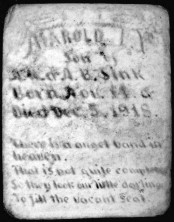 HAROLD
Son of
A. E. Sink
Born Nov. 14
Died Dec. 5, 1918.
There is a angel band in
heaven.
That is not quite complete
So they took our little darling
To fill the vacant seat.